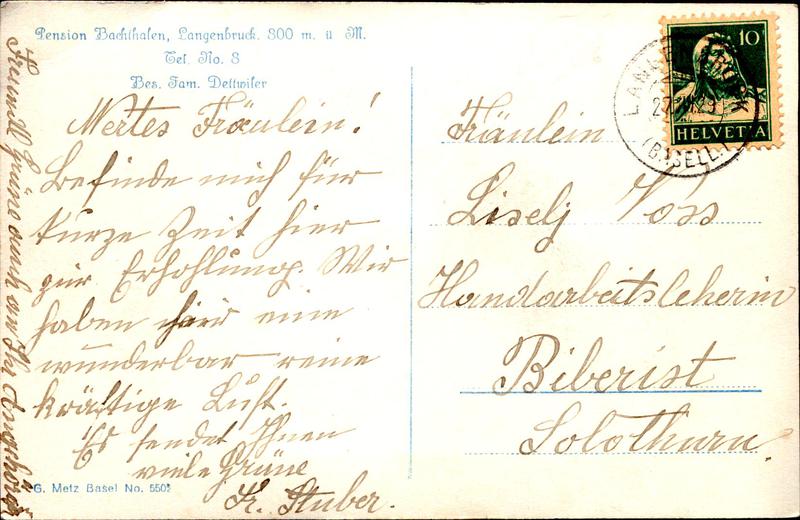 Pension Bachthalen, Langenbruck. 800 m. ü M.
Tel. No. 8
Bes. Fam. Dettwiler
Wertes Fräulein!
Befinde mich für
kurze Zeit hier
zur Erhohlung. Wir
haben hier eine
wunderbar reine
kräftige Luft.
Es sendet Ihnen
viele Grüße
Fr. Stuber.
Grüße auch an Ihre
G. Metz Basel No. 550
10
HELVETIA
LANGENBRUCK
(BASELL.)
Fräulein
Liselj Voss
Handarbeitslehrerin
Biberist
Solothurn.